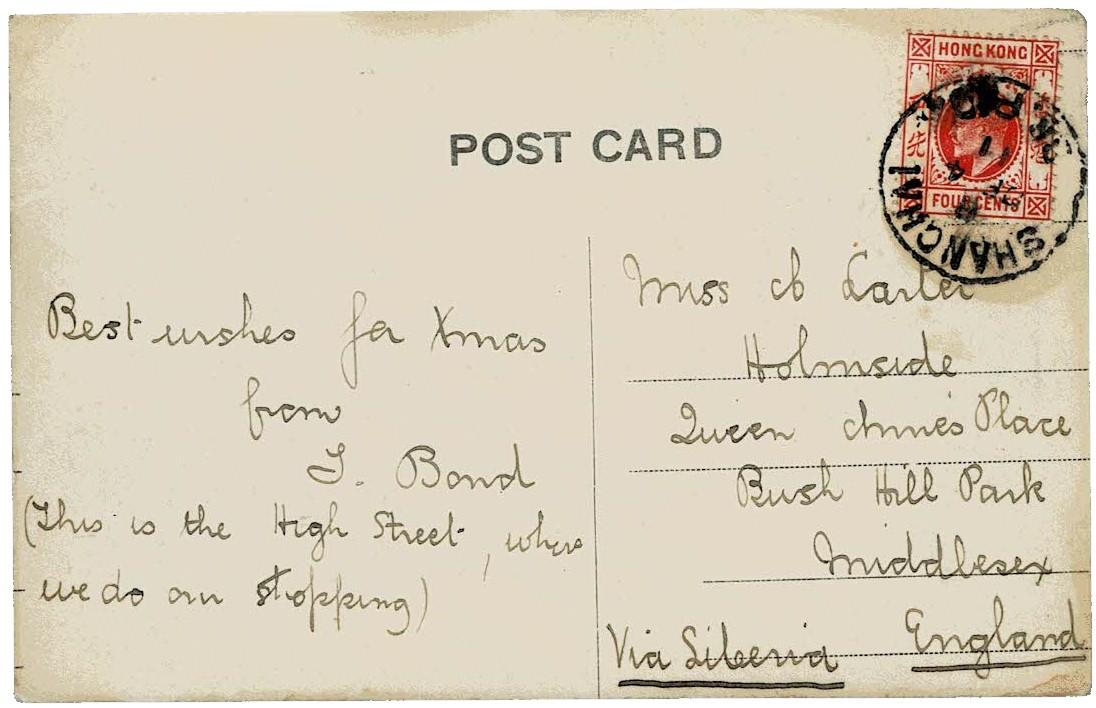 POST CARD
HONG KONG
FOUR CENTS
SHANGHAI
Best wishes for Xmas
from
Bond
(This is the High Street, where
we do our shopping)
Miss
Holmside
Queen Anne's Place
Bush Hill Park
Middlesex
England
Via Siberia